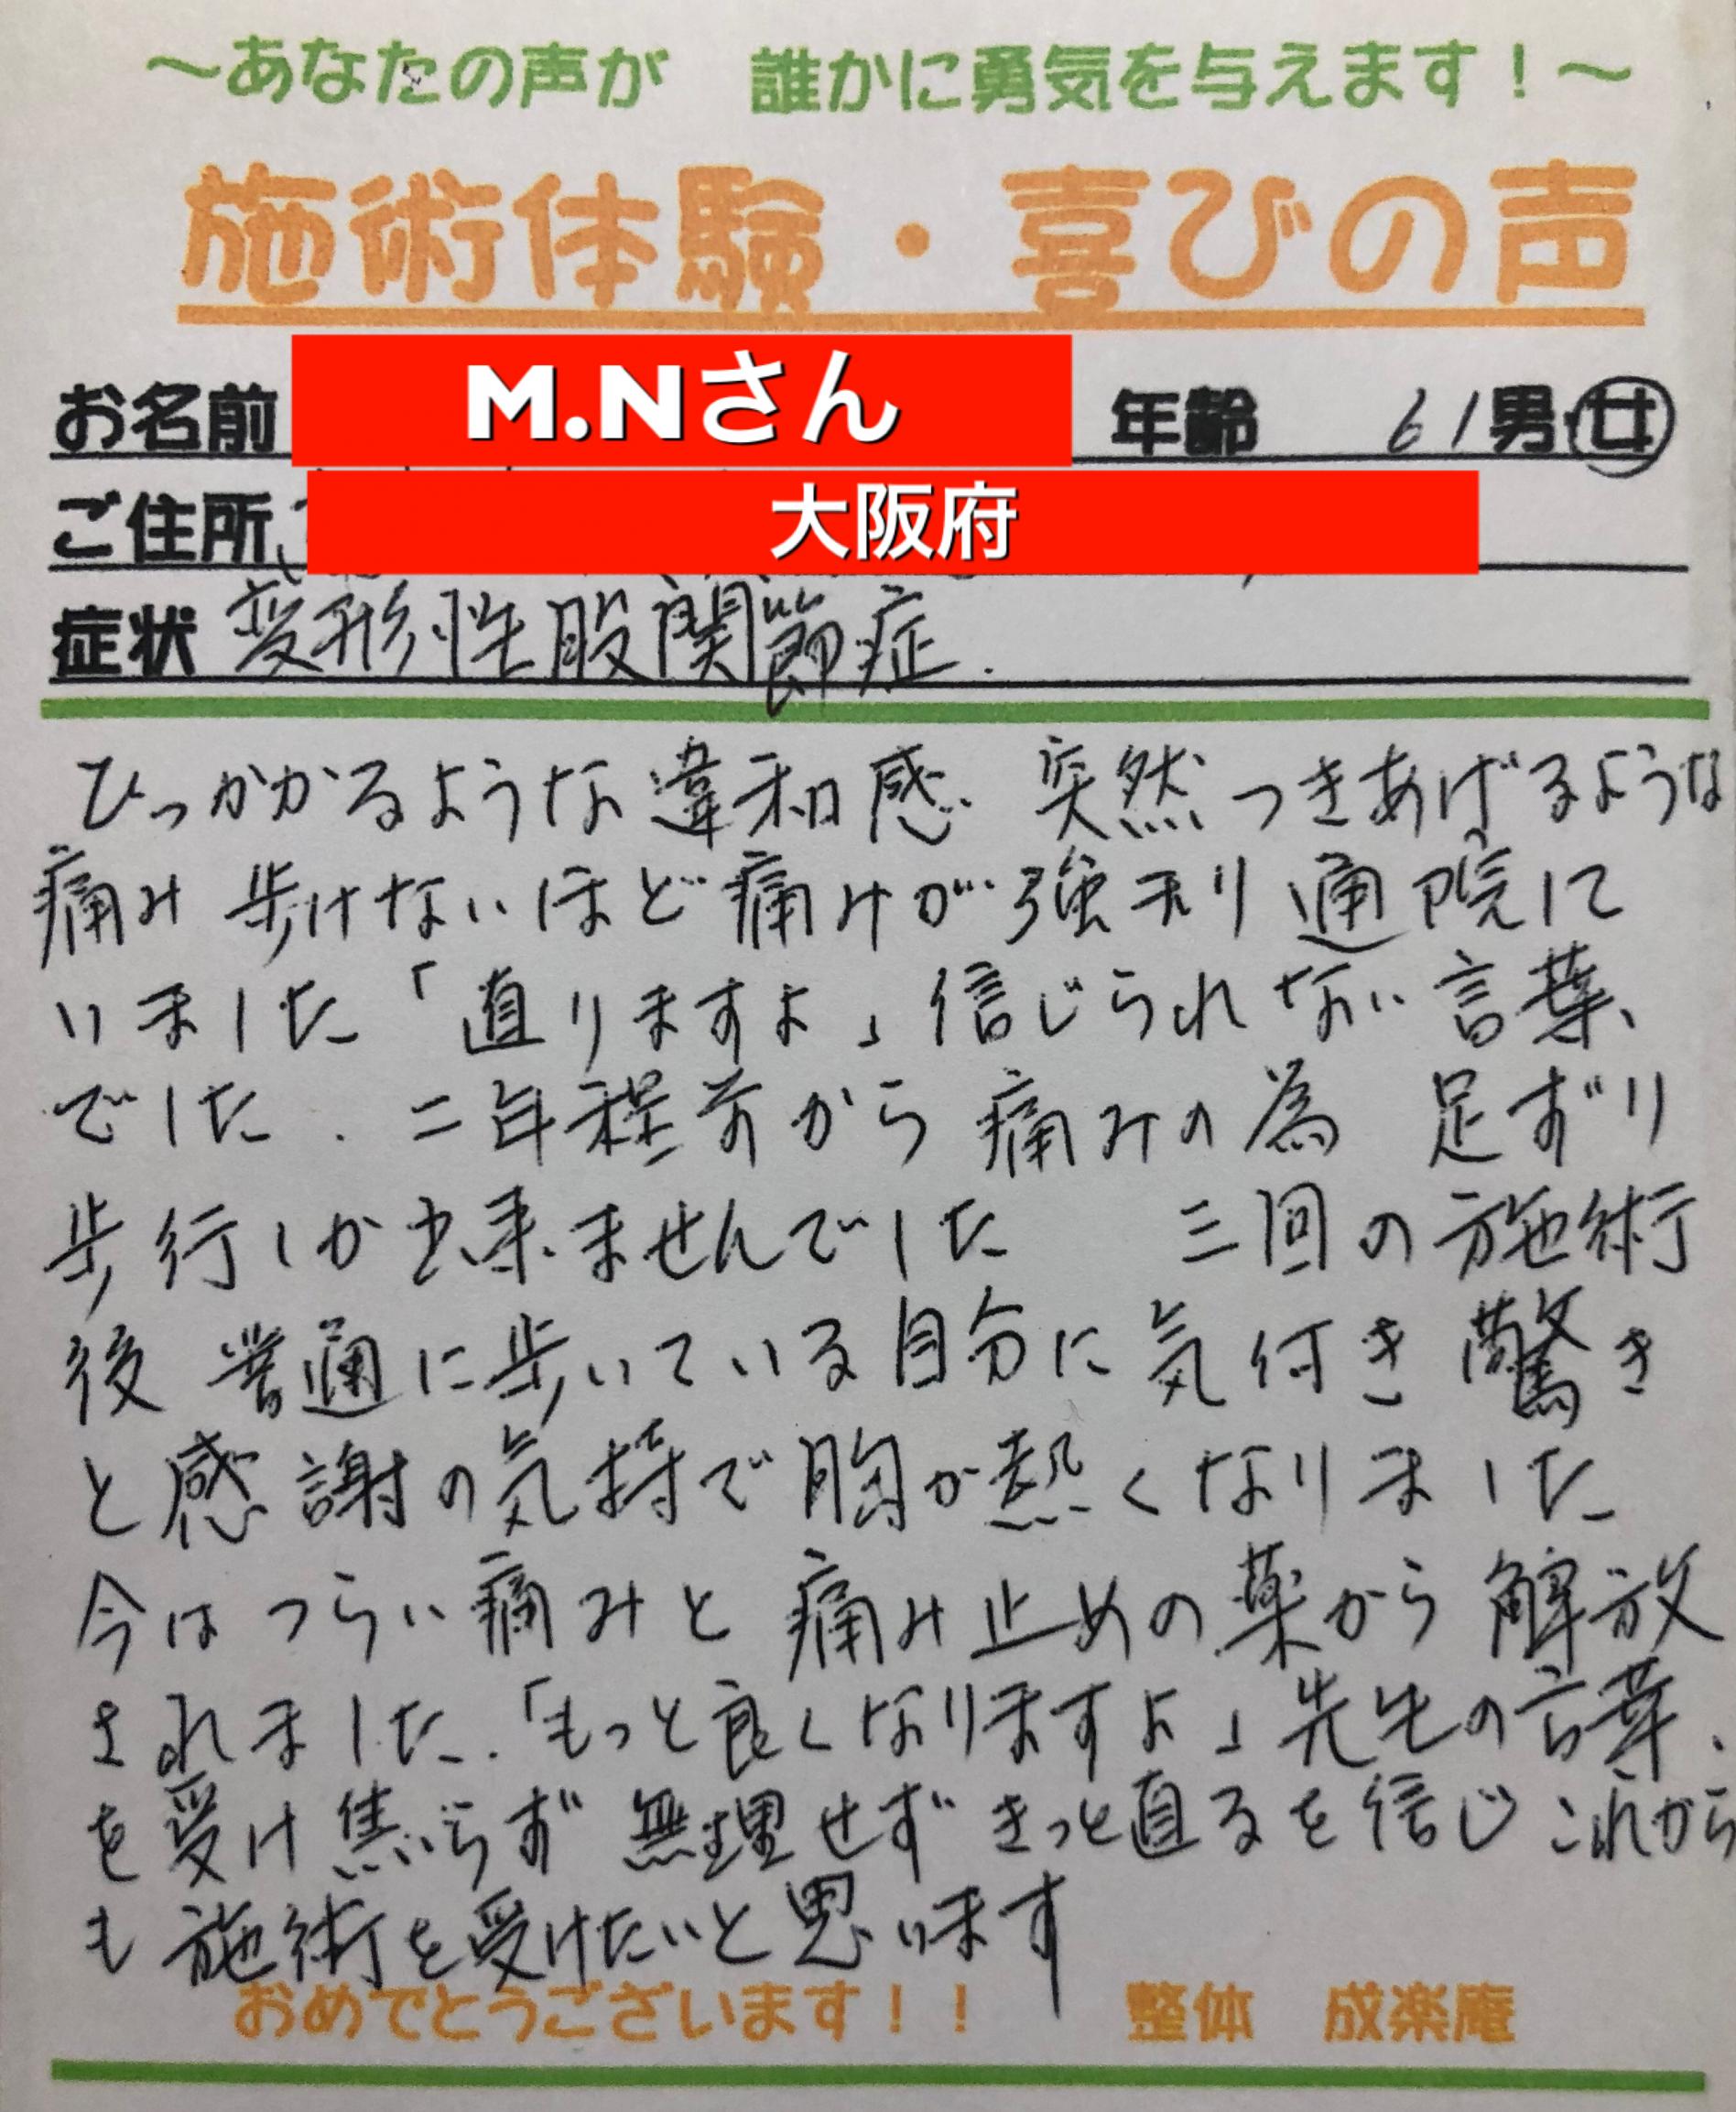 ～あなたの声が　誰かに勇気を与えます！～
施術体験・喜びの声
お名前 M.Nさん 年齢 61 男・女
ご住所 大阪府
症状 変形性股関節症.
ひっかかるような違和感 突然つきあげるような
痛み 歩けないほど痛みが強まり 通院に
いました「直りますよ」信じられない言葉
でした．二年程前から痛みの為 足ずり
歩行しか出来ませんでした 三回の施術
後 普通に歩いている自分に気付き 驚き
と感謝の気持で胸が熱くなりました
今はつらい痛みと痛み止めの薬から解放
されました.「もっと良くなりますよ」先生の言葉
を受け焦らず 無理せず きっと直るを信じ これから
も施術を受けたいと思います
おめでとうございます！！　整体　成楽庵